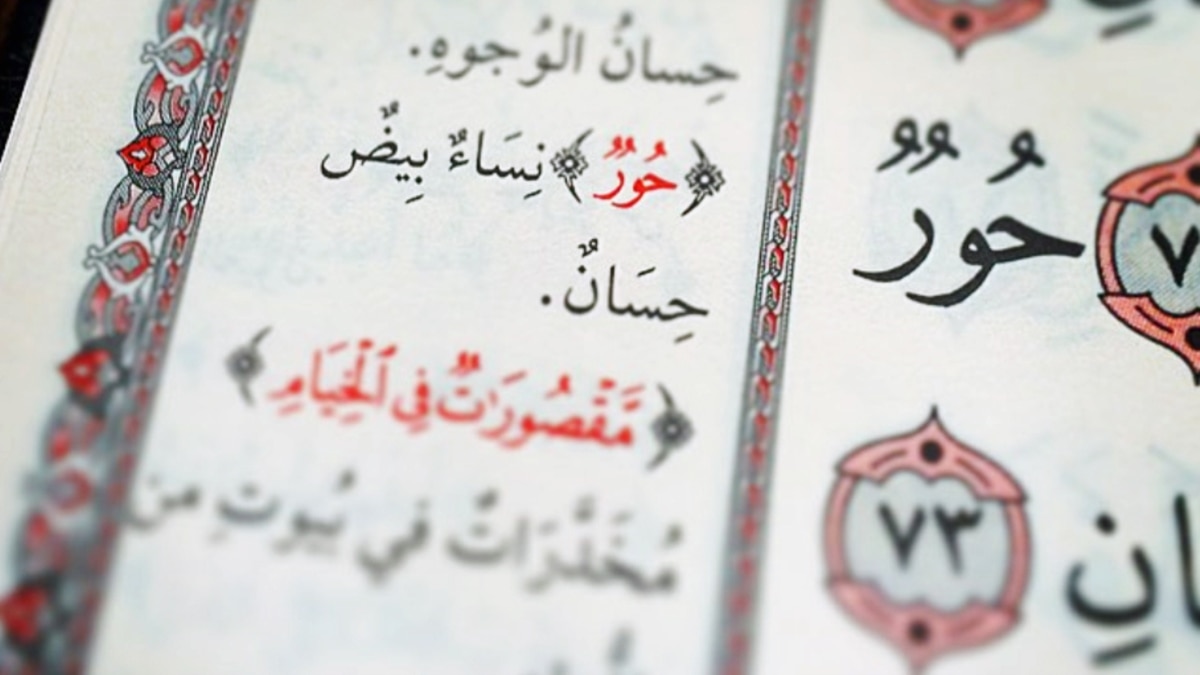 حِسانُ الوُجوهِ.
﴿حُورٌ﴾ نِسَاءٌ بِيضٌ
حِسَانٌ.
﴿مَّقْصُورَٰتٌ فِي ٱلْخِيَامِ﴾
مُخَدَّرَاتٌ في بُيوتٍ من
حُورٌ
٧٣